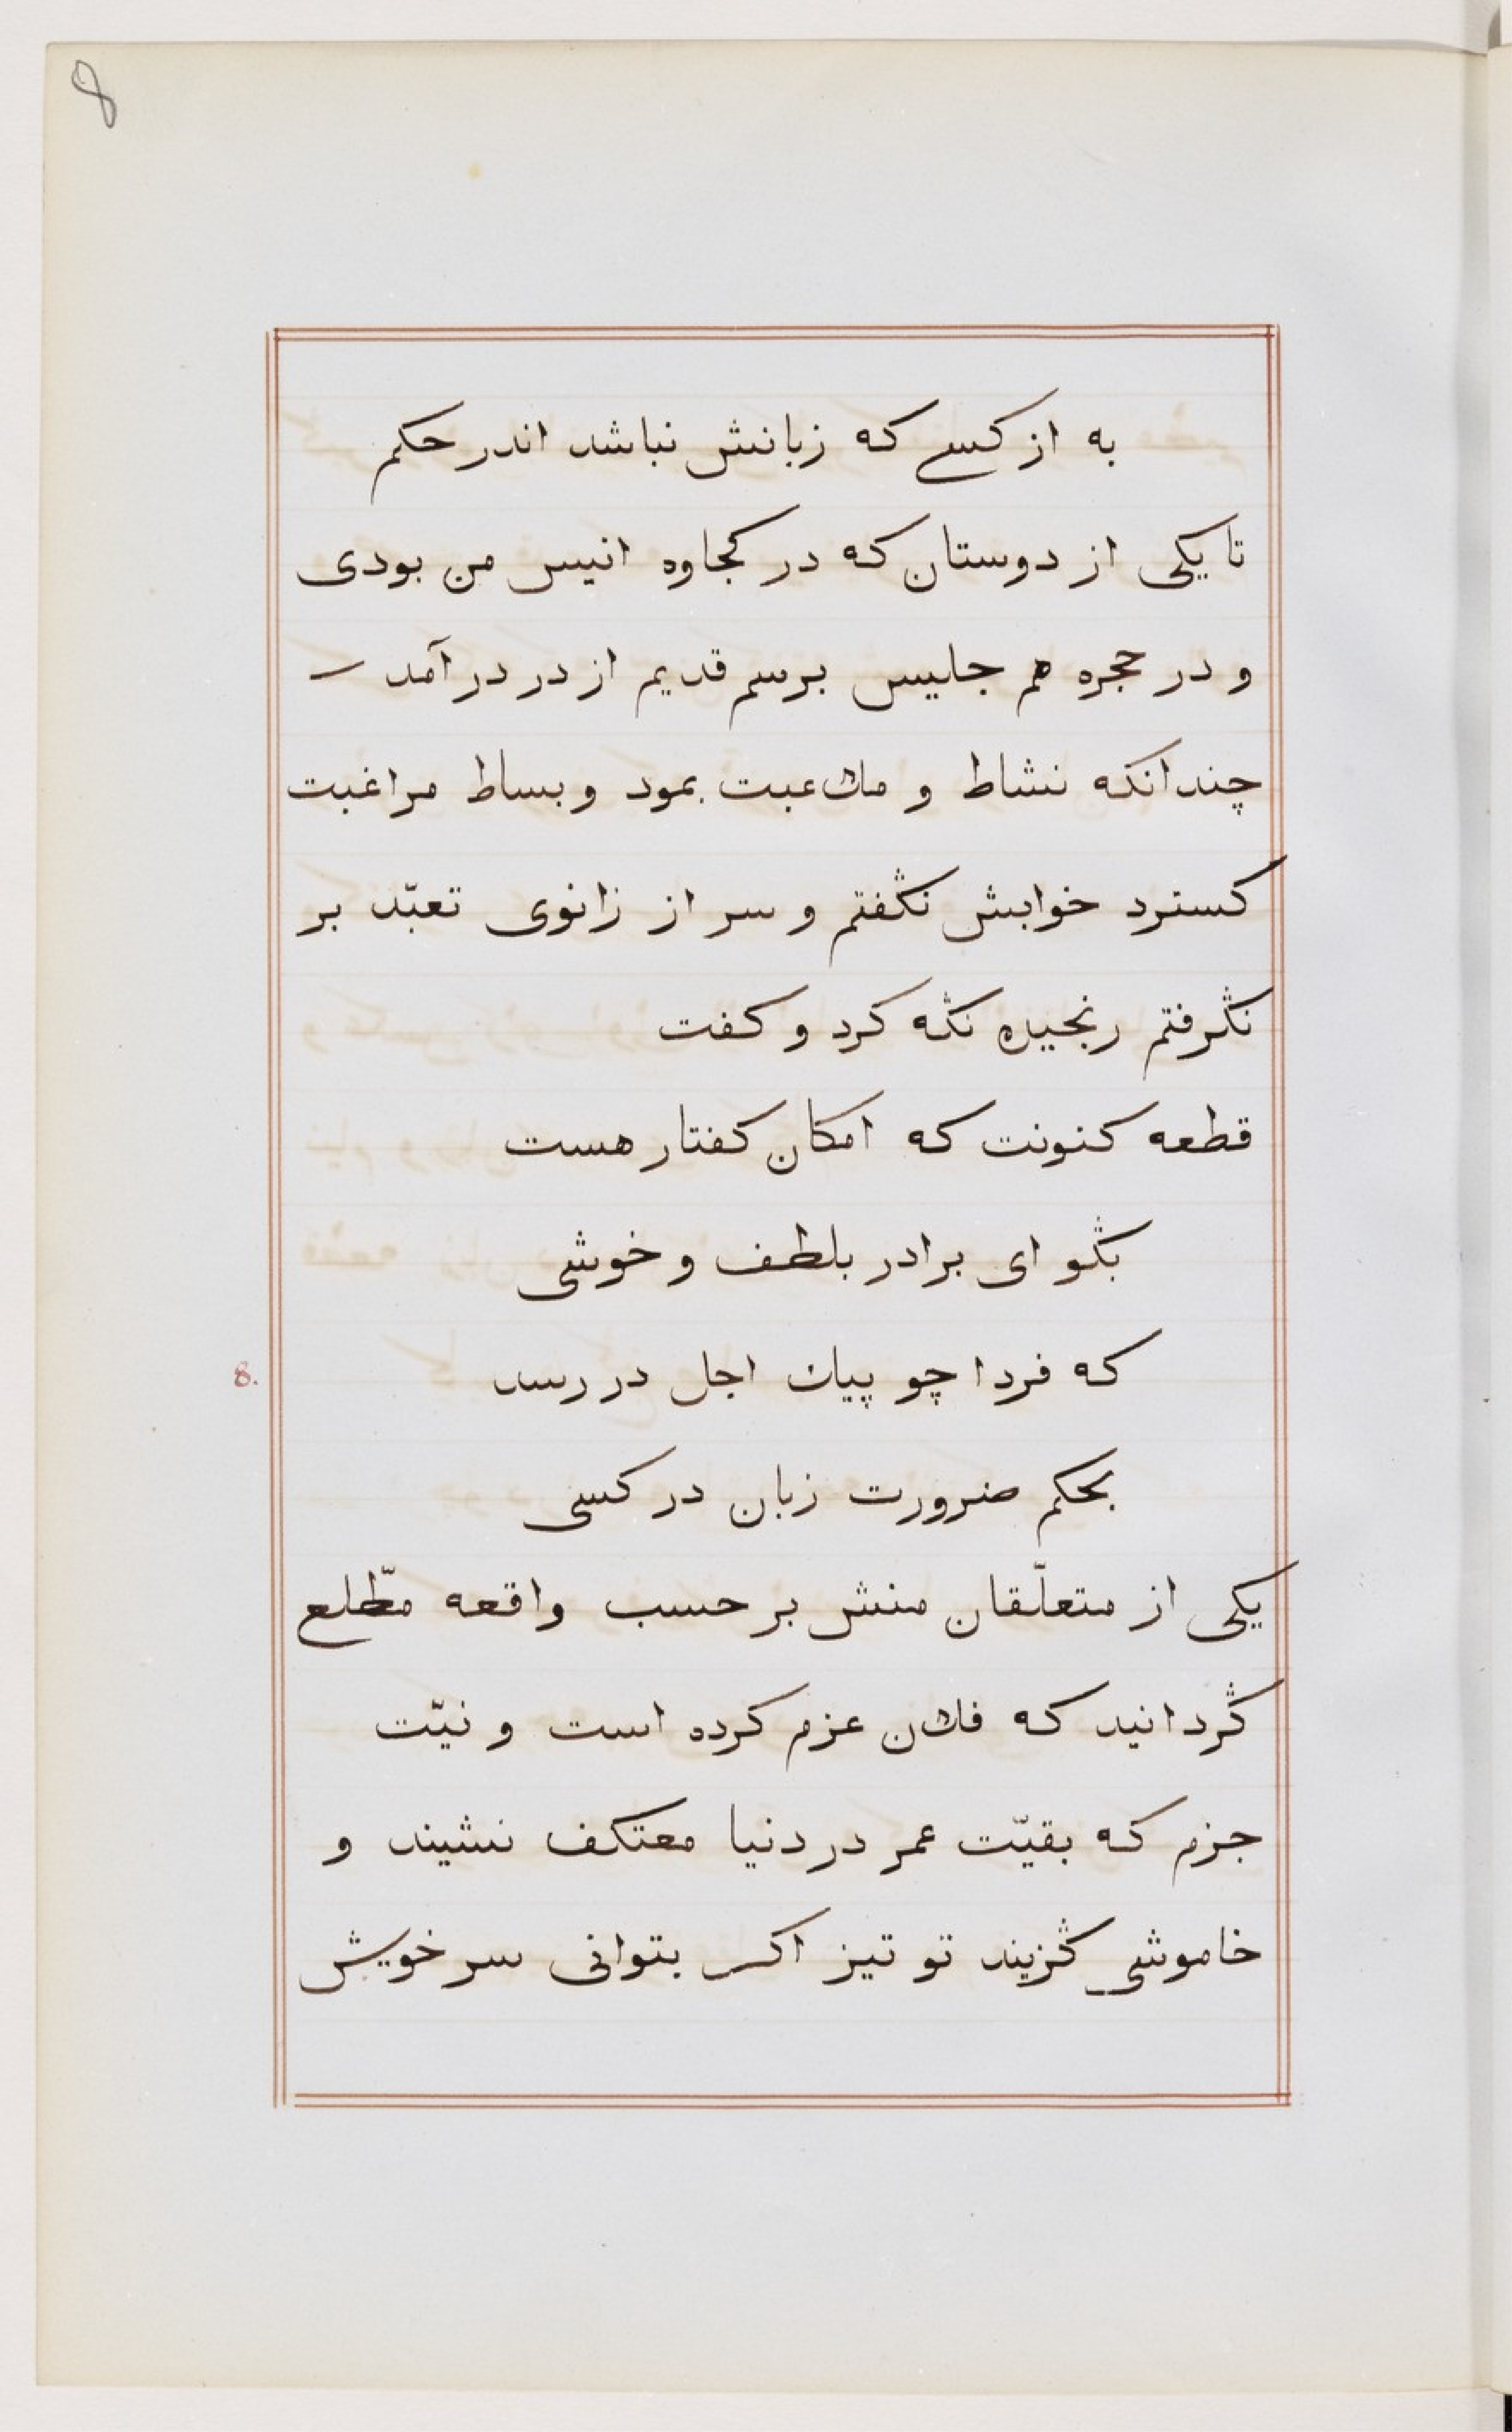 8
به از کسے که زبانش نباشد اندر حکم
تا یکی از دوستان که در کجاوه انیس من بودی
و در حجره هم جلیس برسم قدیم از در در آمد
چندانکه نشاط و ملاعبت بمود و بساط مراغبت
کسترد خوابش نڭفتم و سر از زانوی تعبّد بر
نڭرفتم رنجیده نڭه کرد و کفت
قطعه کنونت که امکان کفتار هست
بڭو ای برادر بلطف و خوشی
که فردا چو پیك اجل در رسد
8.
بحکم ضرورت زبان در کسی
یکی از متعلّقان منش بر حسب واقعه مطّلع
ڭردانید که فلان عزم کرده است و نیّت
جزم که بقیّت عمر در دنیا معتکف نشیند و
خاموشی ڭزیند تو تیز اکر بتوانی سر خویش